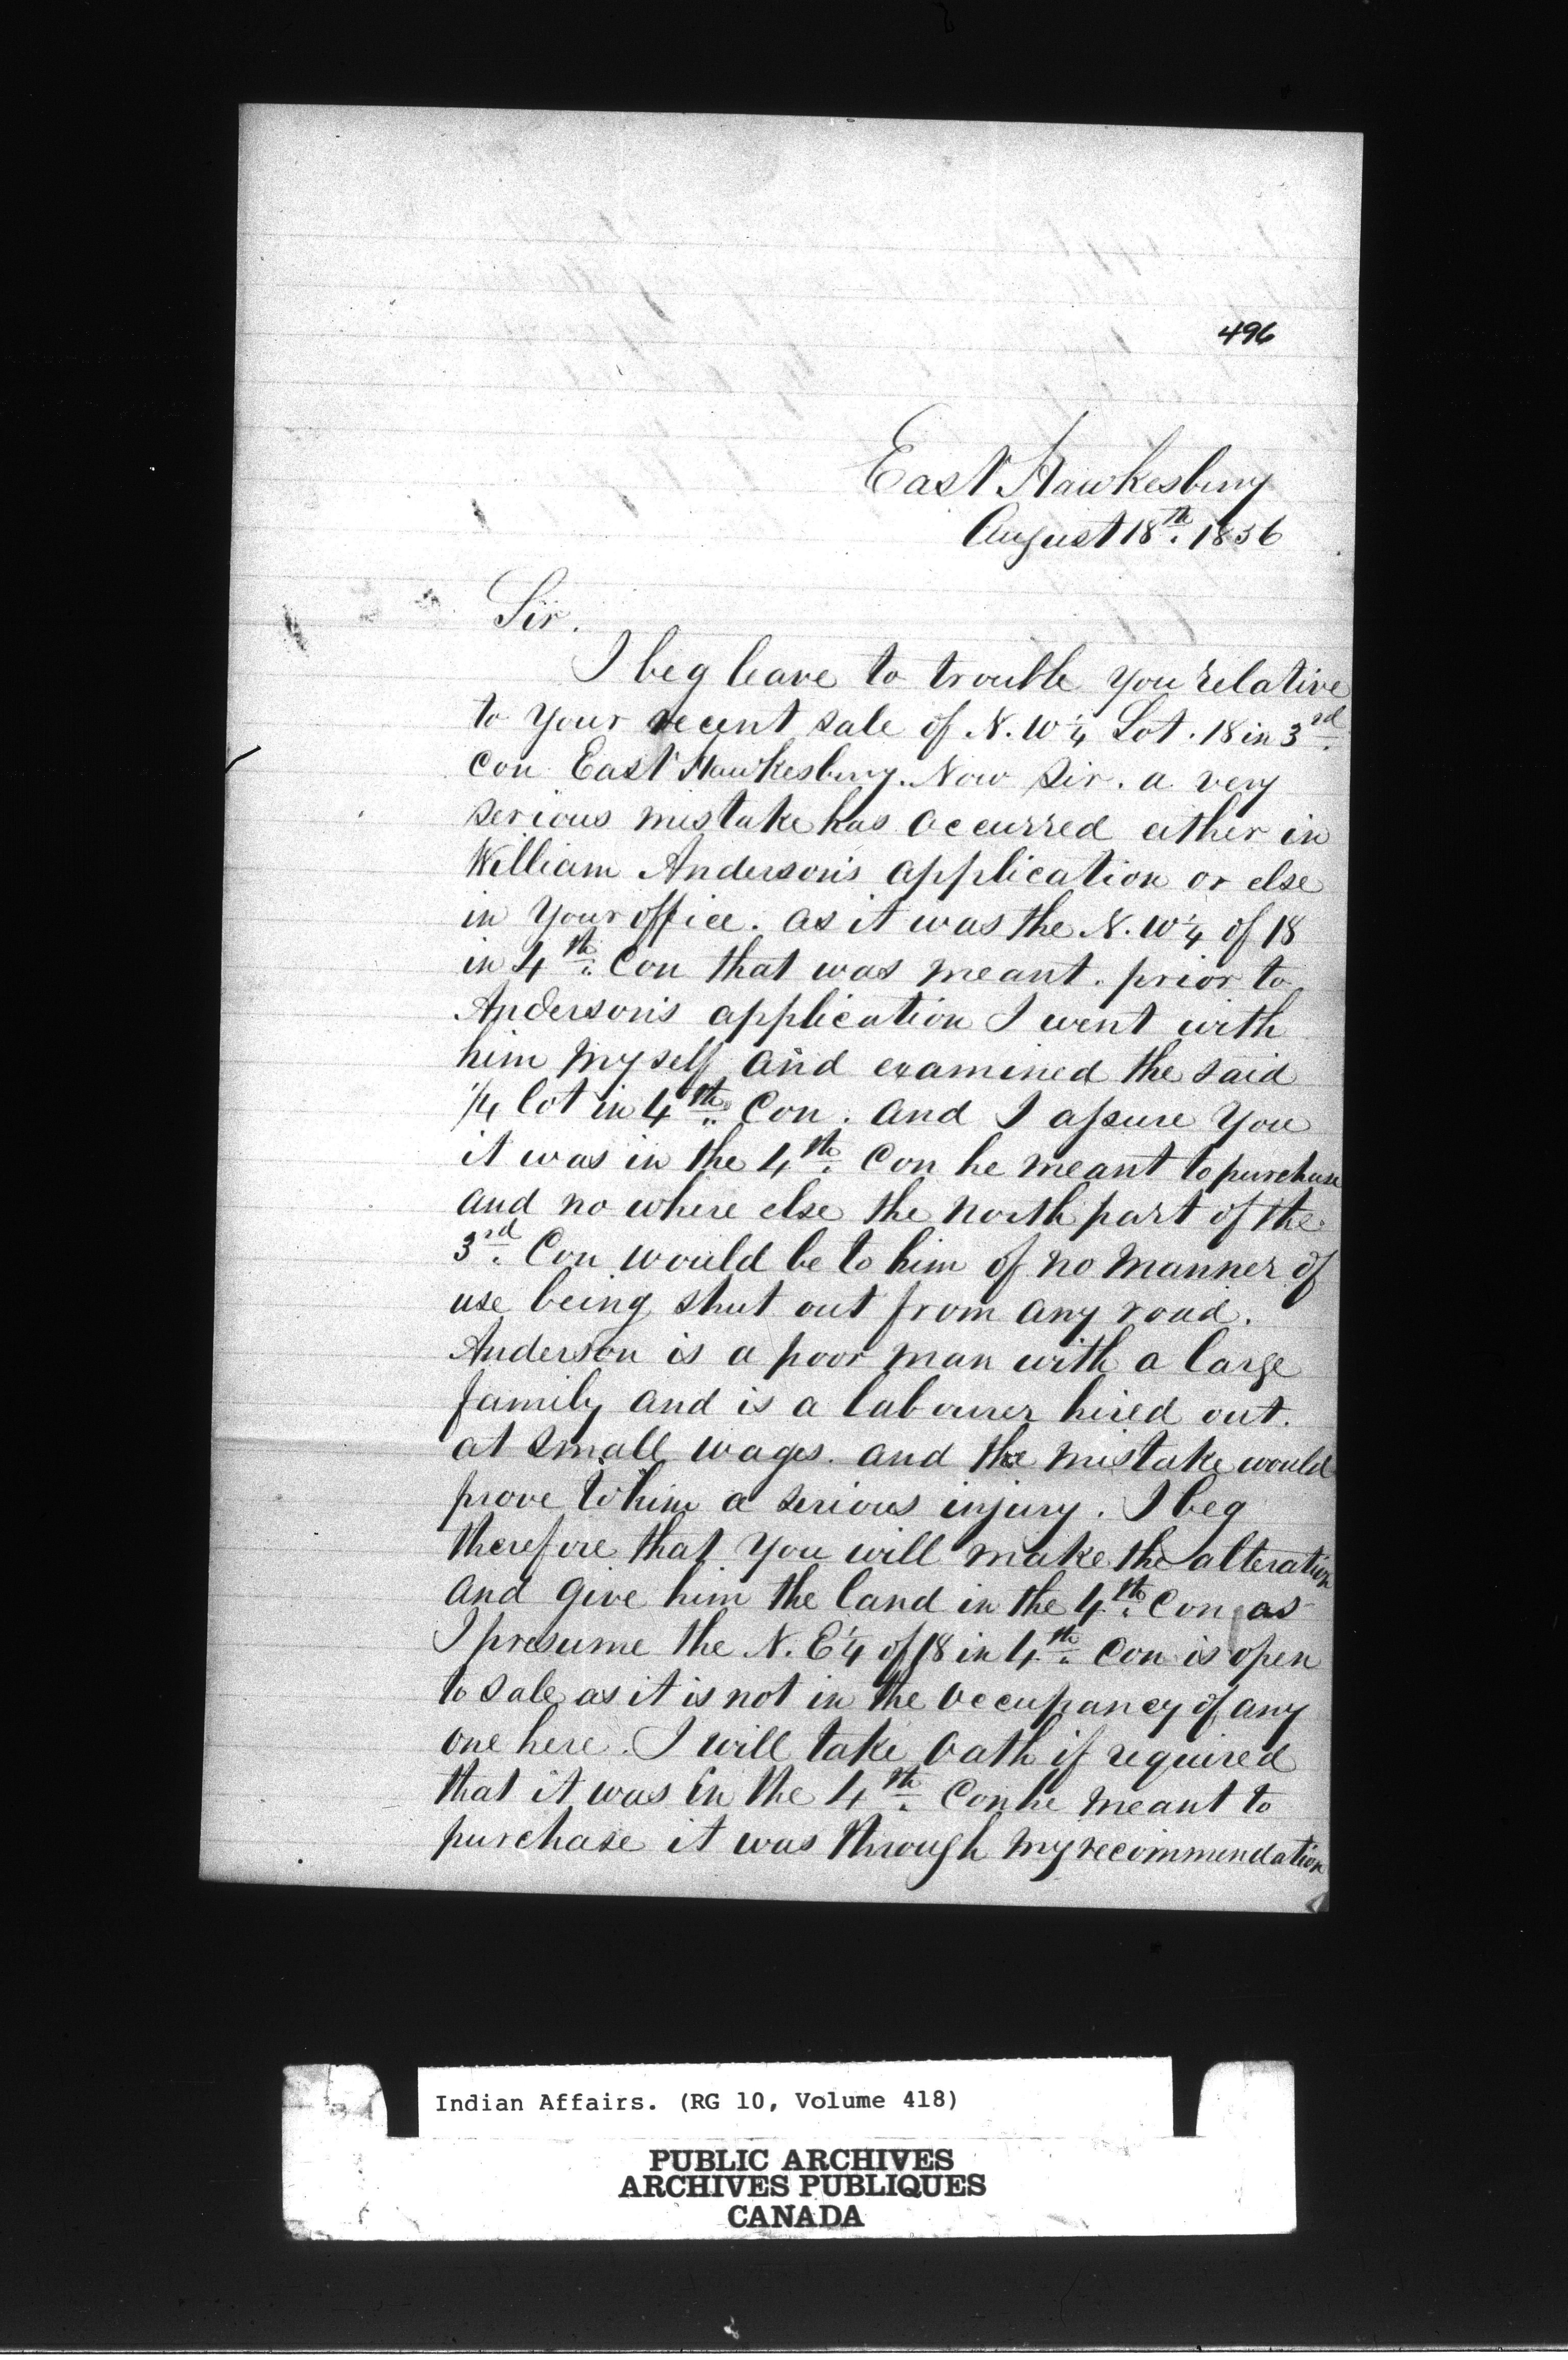 496
East Hawkesbury
August 18th. 1856
Sir.
I beg leave to trouble you relative
to your recent sale of N. W 1/4 Lot. 18 in 3rd.
con East Hawkesbury. Now Sir. a very
serious mistake has occurred either in
William Anderson's application or else
in your office. as it was the N. W 1/4 of 18
in 4th. Con that was meant. prior to
Anderson's application I went with
him myself and examined the said
1/4 lot in 4th. Con. and I assure you
it was in the 4th. Con he meant to purchase
and no where else the North part of the
3rd. Con would be to him of no manner of
use being shut out from any road.
Anderson is a poor man with a large
family and is a labourer hired out.
at small wages. and the mistake would
prove to him a serious injury. I beg
therefore that you will make the alteration
and give him the land in the 4th. Con as
I presume the N. E 1/4 of 18 in 4th. Con is open
to sale as it is not in the occupancy of any
one here. I will take oath if required
that it was in the 4th. Con he meant to
purchase it was through my recommendation
Indian Affairs. (RG 10, Volume 418)
PUBLIC ARCHIVES
ARCHIVES PUBLIQUES
CANADA